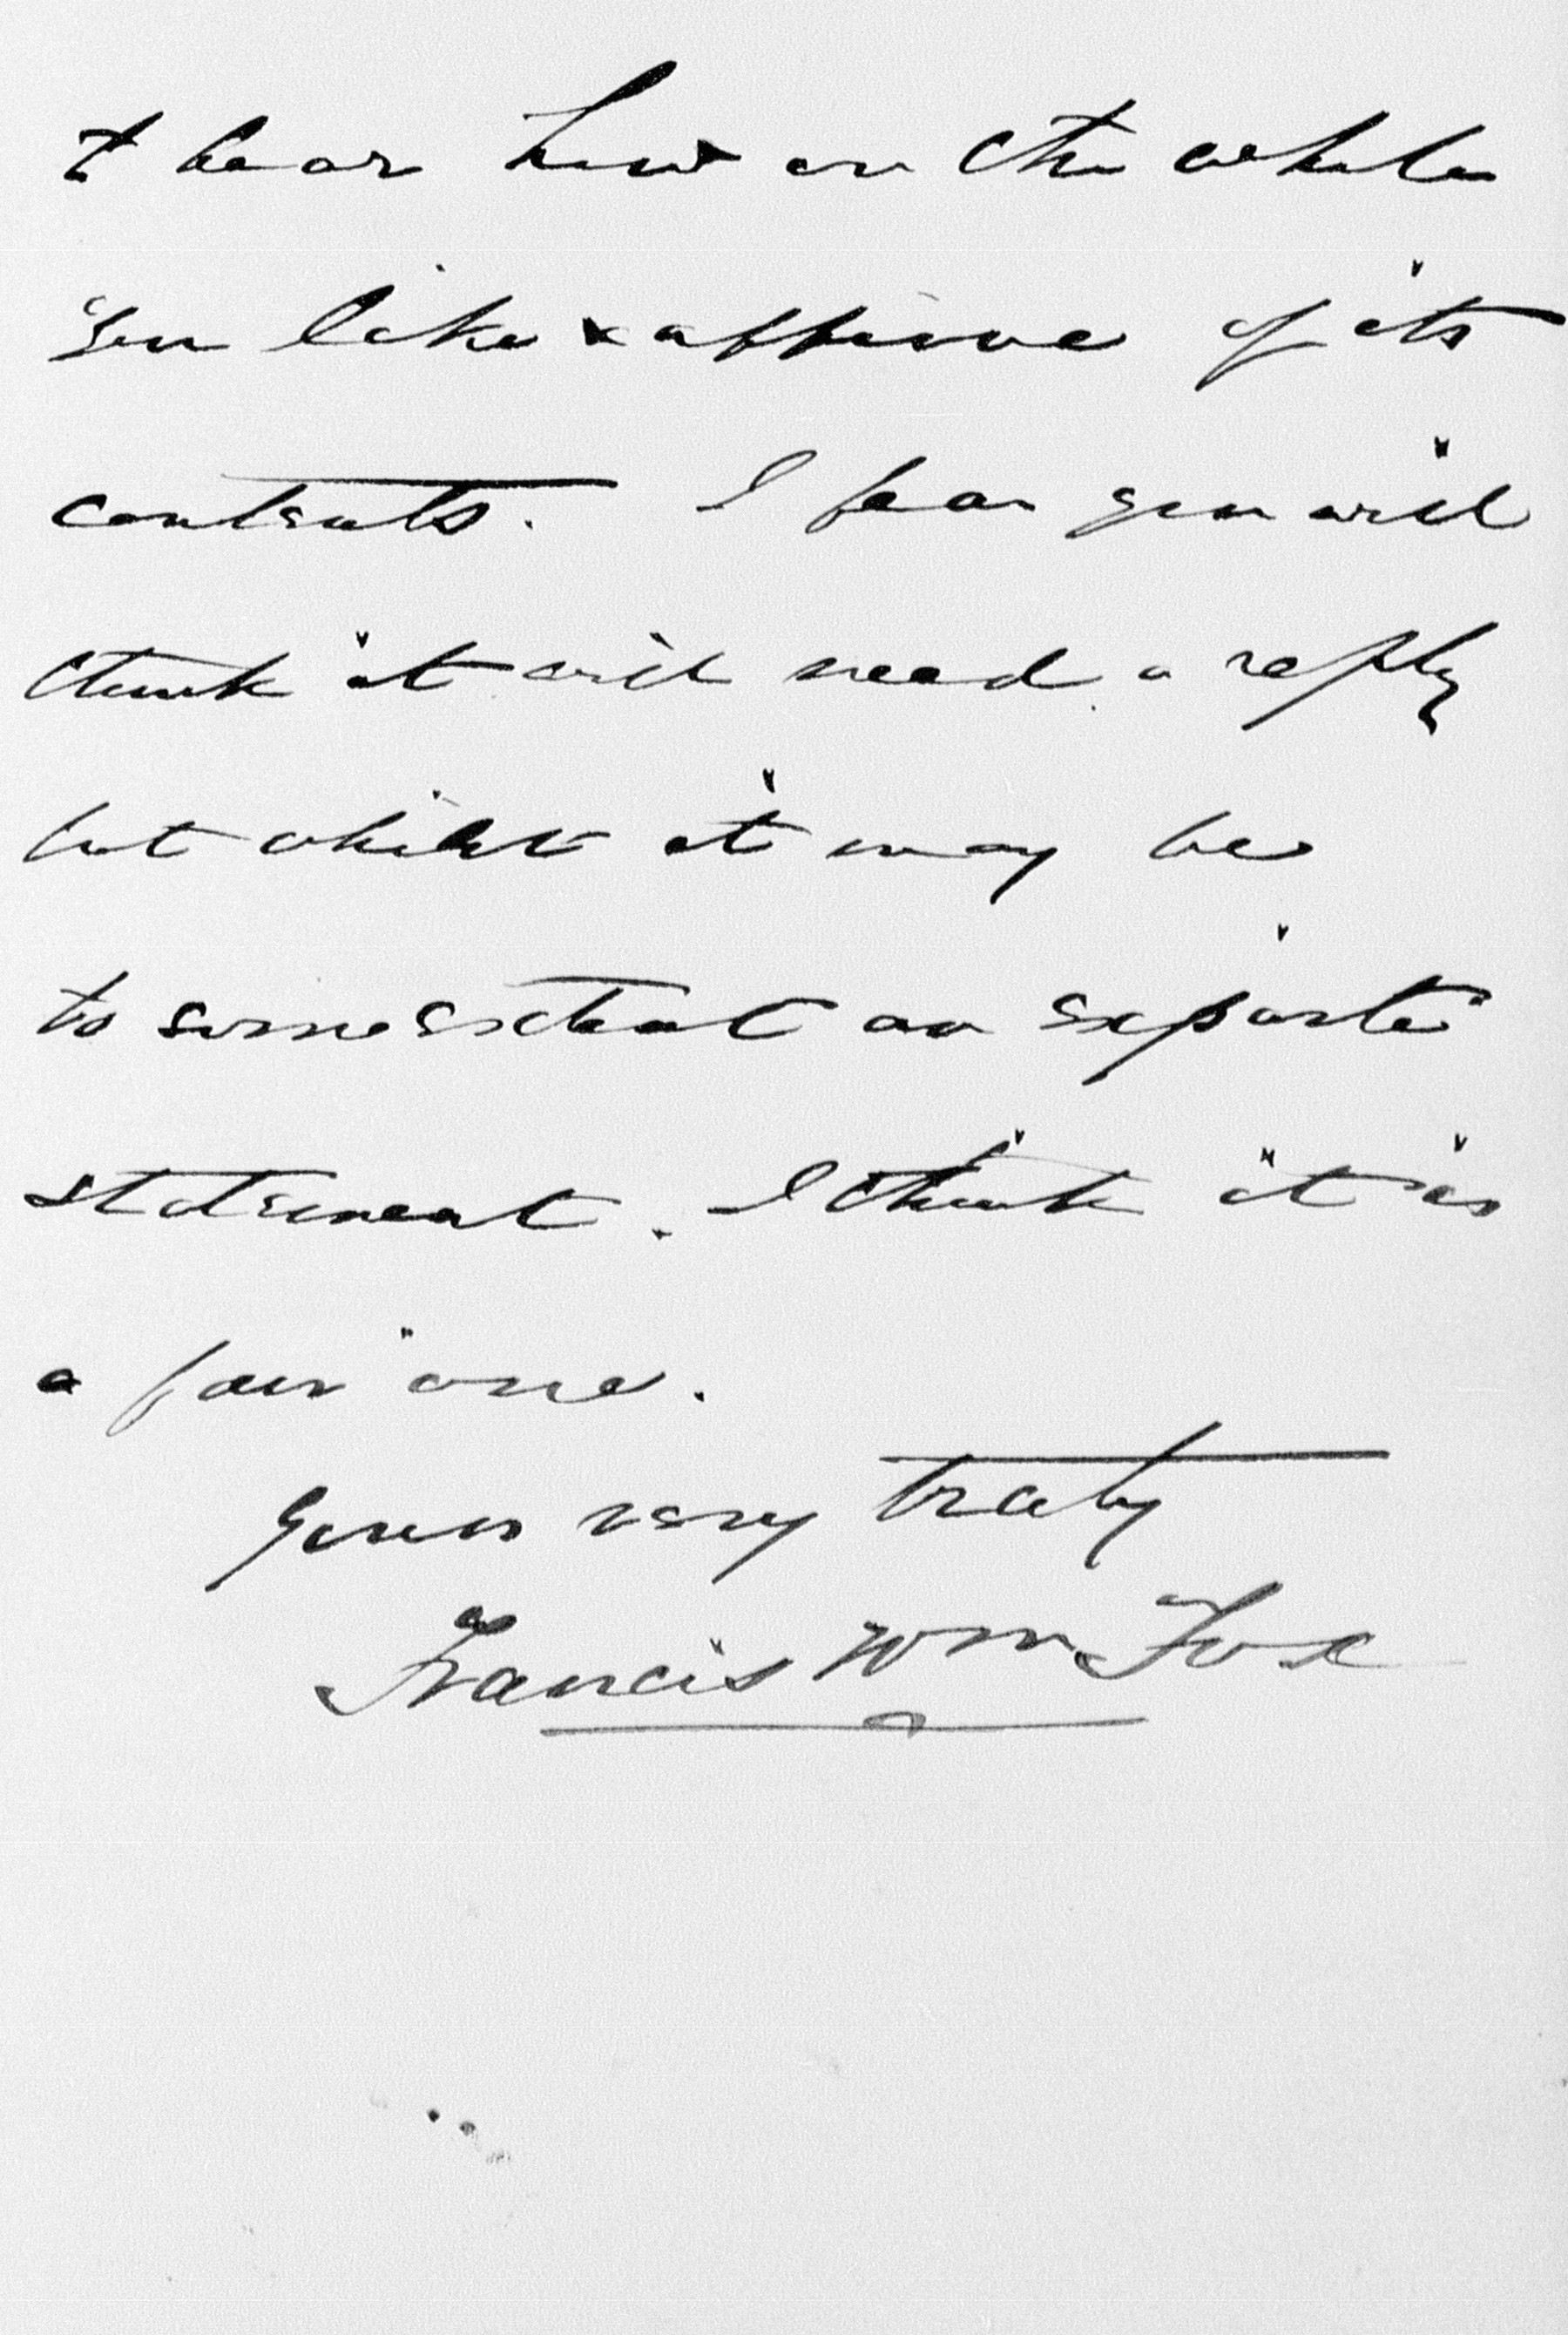 to hear how on the whole
you like & approve of its
contents. I fear you will
think it will need a reply
but whilst it may be
to some extent an exparte
statement. I think it is
a fair one.
Yours very truly
Francis Wm Fox